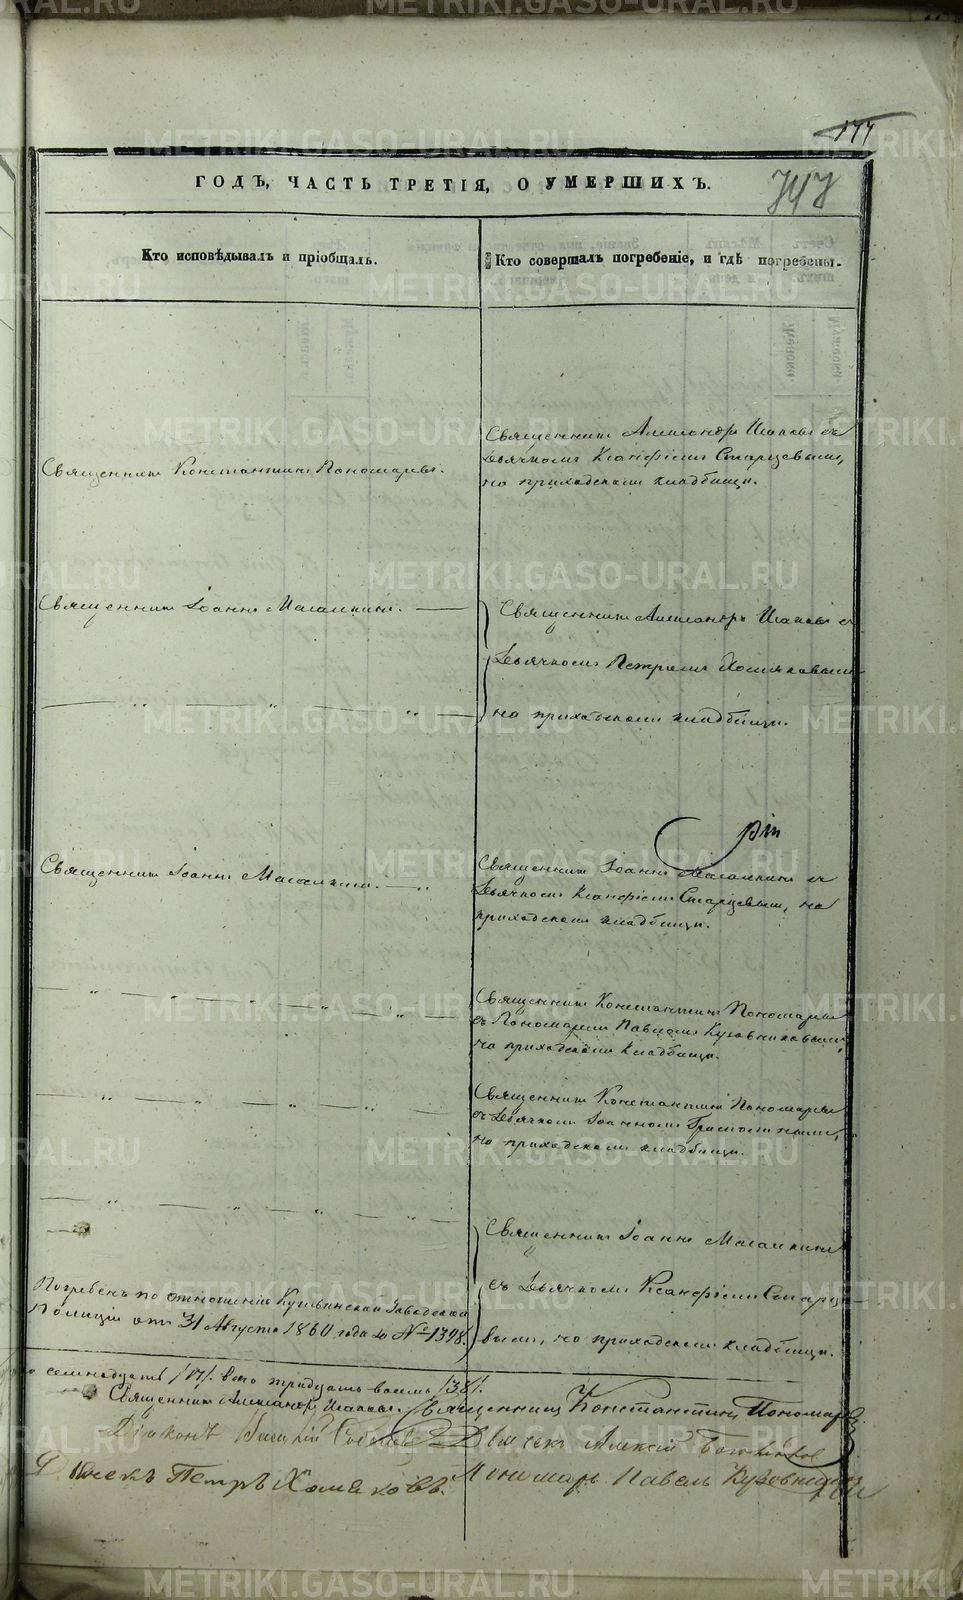 177
ГОДЪ, ЧАСТЬ ТРЕТІЯ, О УМЕРШИХЪ.
747
Кто исповѣдывалъ и пріобщалъ.
Кто совершалъ погребеніе, и гдѣ погребены.
Священникъ Константинъ Пономаревъ.
Священникъ Александръ Шаповъ съ
Дьячкомъ Ксанфіемъ Старцевымъ,
на приходскомъ кладбищѣ.
Священникъ Іоаннъ
Священникъ Александръ Шаповъ съ
Дьячкомъ Петромъ Хомяковымъ
— " — " — " —
на приходскомъ кладбищѣ.
Священникъ Іоаннъ
Священникъ Іоаннъ съ
Дьячкомъ Ксанфіемъ Старцевымъ, на
приходскомъ кладбищѣ.
— " — " — " — " —
Священникъ Константинъ Пономаревъ
съ Пономаремъ Павломъ Кузовниковымъ,
на приходскомъ кладбищѣ.
— " — " — " — " —
Священникъ Константинъ Пономаревъ
съ Дьячкомъ Іоанномъ
на приходскомъ кладбищѣ.
— " — " — " — " —
Священникъ Іоаннъ
съ Дьячкомъ Ксанфіемъ Старце-
вымъ, на приходскомъ кладбищѣ.
Погребенъ по отношенію Кушвинской Заводской
Полиціи отъ 31 Августа 1860 года за № 1398.
семнадцать /17/. всего тридцать восемь /38/.
Священникъ Александръ Шаповъ. Священникъ Константинъ Пономаревъ.
Діаконъ Дьячекъ Алексѣй
Дьячекъ Петръ Хомяковъ. Пономарь Павелъ Кузовниковъ
METRIKI.GASO-URAL.RU